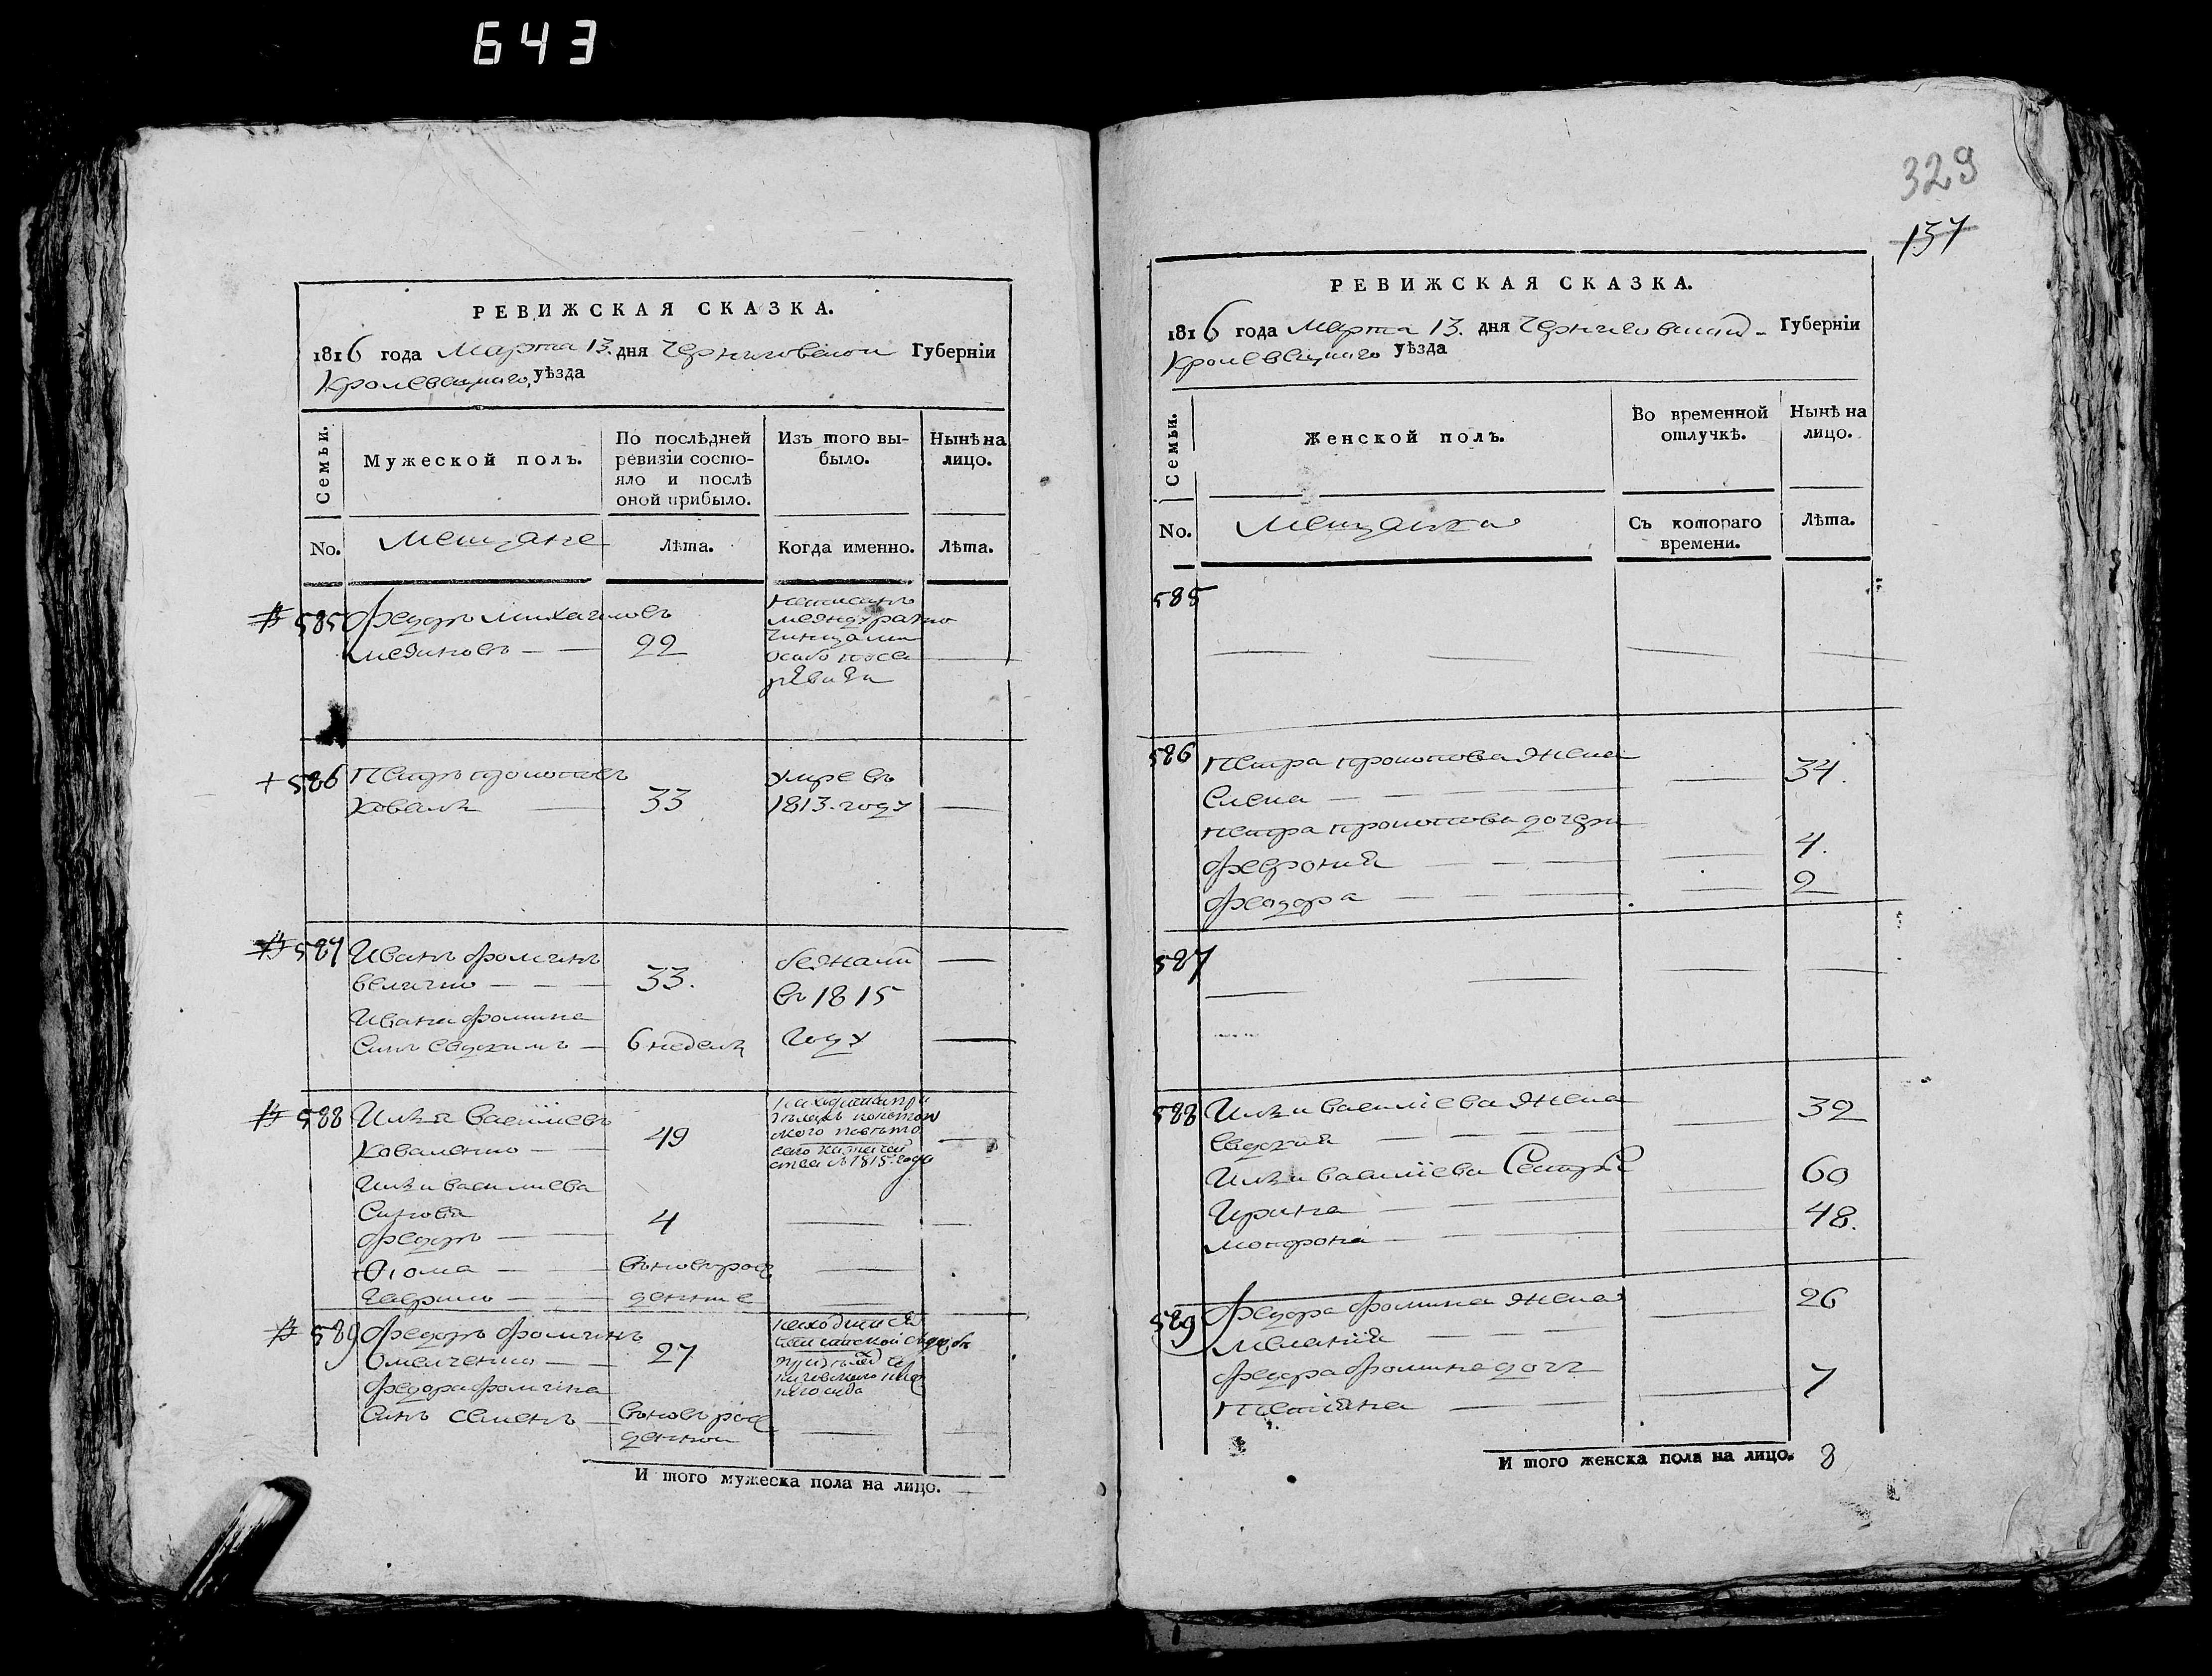 643
РЕВИЖСКАЯ СКАЗКА.
1816 года Марта 13. дня Черниговской Губерніи
Кролевецкаго уѣзда
Семьи.
Мужеской полъ.
По послѣдней ревизіи состояло и послѣ оной прибыло.
Изъ того выбыло.
Нынѣ на лицо.
No.
Мещане
Лѣта.
Когда именно.
Лѣта.
585 Федоръ Михайловъ
22
особо
586 Петръ Прокоповъ
Коваль 33
умре въ
1813. году
587 Иванъ Фоминъ
Величко 33.
Ивана Фомина
Синъ Евдокимъ 6 недель
бежали
въ 1815
году
588 Илья Василіевъ
Коваленко 49
1815. года
Ильи Василиева
Синовя
Федоръ 4
Фома
Гаврило
вновь рожденние
589 Федоръ Фоминъ
Омелченко 27
находится
Федора Фомина
Синъ Семенъ вновь рожденной
И того мужеска пола на лицо. —
329
157
РЕВИЖСКАЯ СКАЗКА.
1816 года Марта 13. дня Черниговской Губерніи
Кролевецкаго уѣзда
Семьи.
Женской полъ.
Во временной отлучкѣ.
Нынѣ на лицо.
No.
Мещанки
Съ котораго времени.
Лѣта.
585
586 Петра Прокопова жена
Елена 34.
Петра Прокопова дочери
Феврония 4.
Феодора 2
587
588 Ильи Василіева жена
Евдокия 32
Ильи Василіева Сестри
Ирина 60
Мотрона 48.
589 Федора Фомина жена
Мелания 26
Федора Фомина дочь
Татияна 7
И того женска пола на лицо. 8